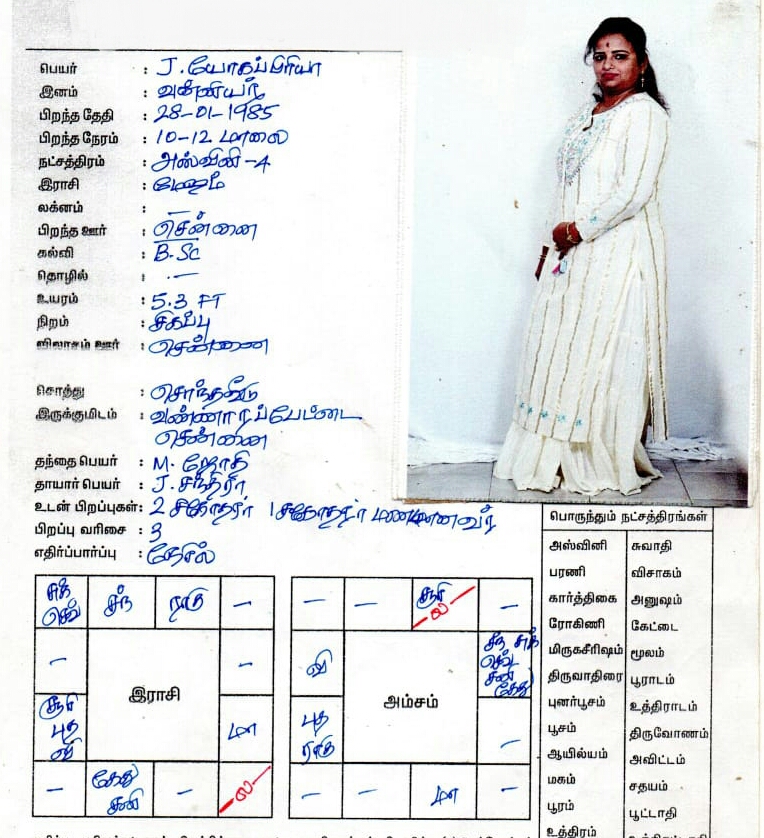 பெயர் : J. யோகப்பிரியா
இனம் : வன்னியர்
பிறந்த தேதி : 28-01-1985
பிறந்த நேரம் : 10-12 மாலை
நட்சத்திரம் : அஸ்வினி -4
இராசி : மேஷம்
லக்னம் : —
பிறந்த ஊர் : சென்னை
கல்வி : B.Sc
தொழில் : -—
உயரம் : 5.3 FT
நிறம் : சிகப்பு
விலாசம் ஊர் : சென்னை
சொத்து : சொந்தவீடு
இருக்குமிடம் : வண்ணாரப்பேட்டை
சென்னை
தந்தை பெயர் : M. ஜோதி
தாயார் பெயர் : J. சந்திரா
உடன் பிறப்புகள் : 2 சகோதரர் 1 சகோதரர் மணமானவர்
பிறப்பு வரிசை : 3
எதிர்ப்பார்ப்பு :
சுக் செவ் சந் ராகு —
— —
இராசி
சூரி புத வி மா
கேது சனி — ல
— — சூரி ல —
வி சந் சுக் செவ் சனி கேது
அம்சம்
புத ராகு —
— — மா —
பொருந்தும் நட்சத்திரங்கள்
அஸ்வினி சுவாதி
பரணி விசாகம்
கார்த்திகை அனுஷம்
ரோகிணி கேட்டை
மிருகசீரிஷம் மூலம்
திருவாதிரை பூராடம்
புனர்பூசம் உத்திராடம்
பூசம் திருவோணம்
ஆயில்யம் அவிட்டம்
மகம் சதயம்
பூரம் பூட்டாதி
உத்திரம்